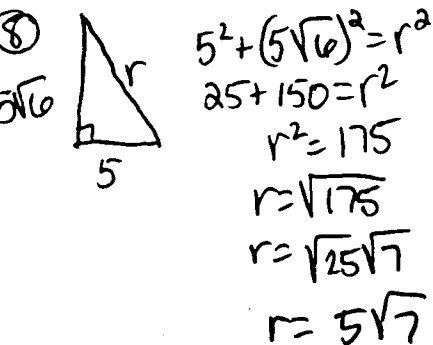 ⑧
r
5√6
5
5² + (5√6)² = r²
25 + 150 = r²
r² = 175
r = √175
r = √25√7
r = 5√7